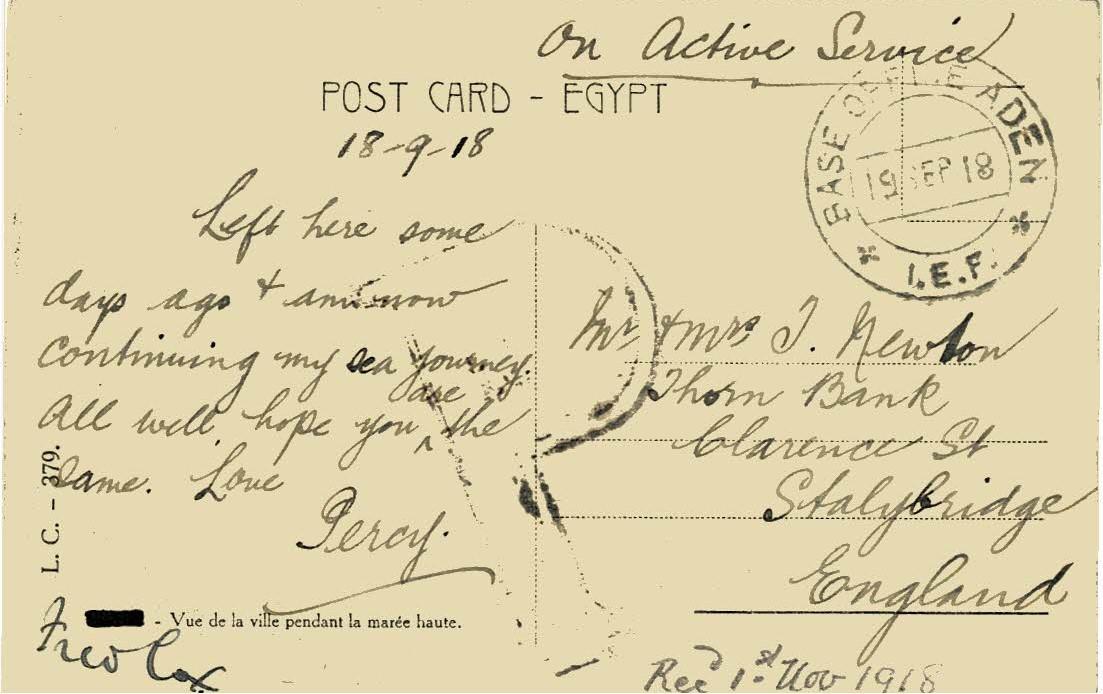 On Active Service
POST CARD - EGYPT
18-9-18
BASE OFFICE ADEN
19 SEP 18
I.E.F.
Left here some
days ago + am now
continuing my sea journey.
All well, hope you are the
same. Love
Percy.
Mr & Mrs J. Newton
Thorn Bank
Clarence St
Stalybridge
England
L. C. - 379.
- Vue de la ville pendant la marée haute.
Fred Cox
Recd 1st Nov 1918